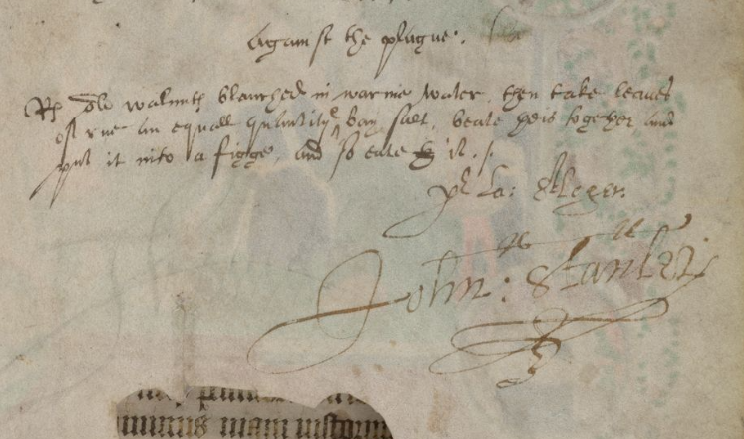 Against the plague.
Rx old walnuts blanched in warme water, then take leaves
of rue an equall quantitye bay salt, beate this togeher and
put it into a figge, and so eate it ./.
John: Stanley